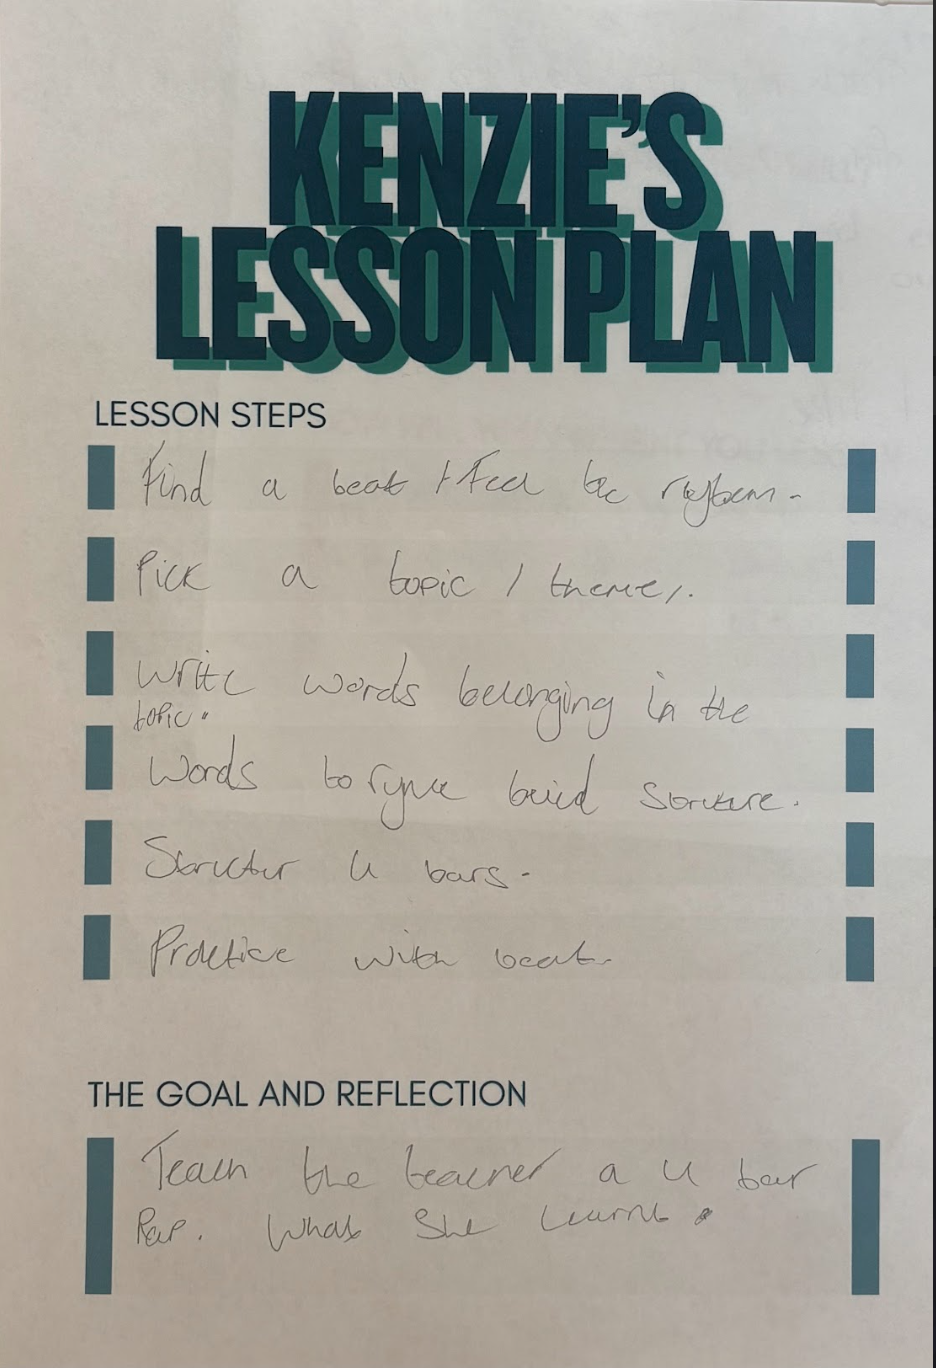 KENZIE'S
LESSON PLAN
LESSON STEPS
Find a beat / Feel the
Pick a topic / theme,.
Write words belonging in the
topic.
Words to ryme build
Structur 4 bars.
Practice with beat.
THE GOAL AND REFLECTION
Teach the teacher a 4 bar
Rap. What She Learnt.